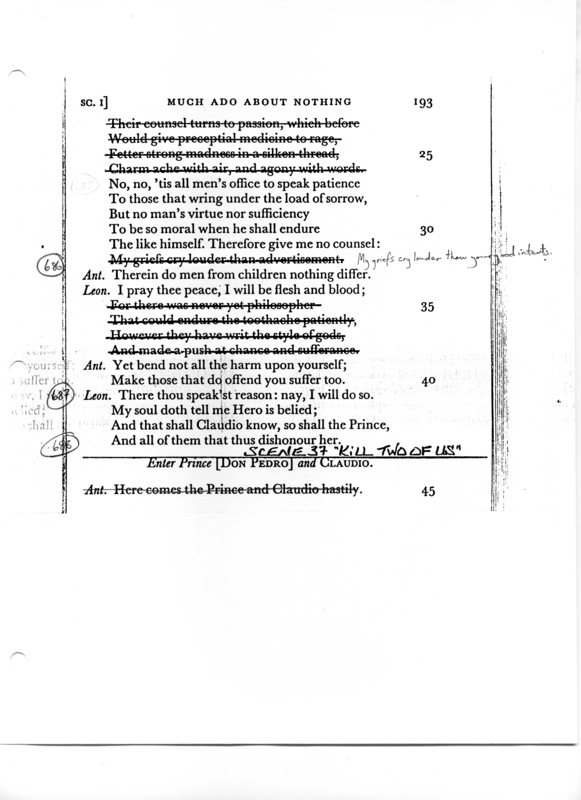 SC. I] MUCH ADO ABOUT NOTHING 193
Their counsel turns to passion, which before
Would give preceptial medicine to rage,
Fetter strong madness in a silken thread, 25
Charm ache with air, and agony with words.
No, no, 'tis all men's office to speak patience
To those that wring under the load of sorrow,
But no man's virtue nor sufficiency
To be so moral when he shall endure 30
The like himself. Therefore give me no counsel:
686 My griefs cry louder than advertisement. My griefs cry louder than your good intents.
Ant. Therein do men from children nothing differ.
Leon. I pray thee peace, I will be flesh and blood;
For there was never yet philosopher 35
That could endure the toothache patiently,
However they have writ the style of gods,
And made a push at chance and sufferance.
yourself Ant. Yet bend not all the harm upon yourself;
suffer Make those that do offend you suffer too. 40
687 Leon. There thou speak'st reason: nay, I will do so.
lied; My soul doth tell me Hero is belied;
shall And that shall Claudio know, so shall the Prince,
688 And all of them that thus dishonour her.
SCENE 37 "KILL TWO OF US"
Enter Prince [DON PEDRO] and CLAUDIO.
Ant. Here comes the Prince and Claudio hastily. 45